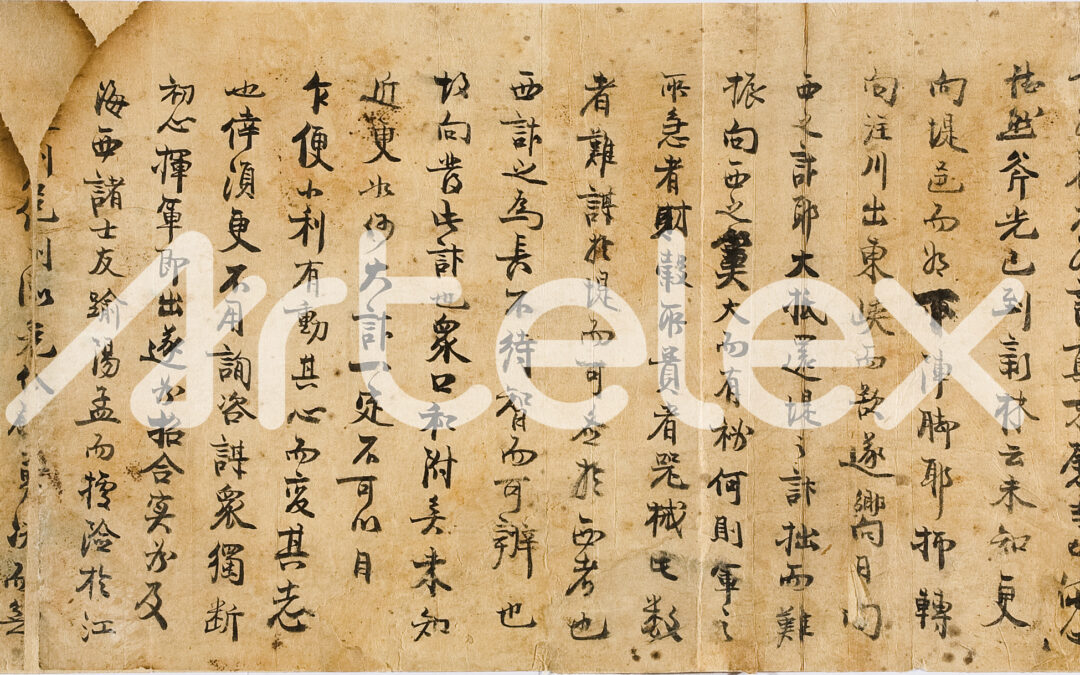 然斧光已到新林云未知更
向堤邑而下陣脚耶抑轉
向注川出東峽而散遂嚮日向
西之計耶大抵還堤之計拙而難
振向西之大而有秘何則軍之
所急者財穀所貴者器械此数
者難謀於堤而可益於西者也
西計之為長不待智而可辨也
故向計也衆口和附矣未知
近更如何大計一定不可以目
乍便小利有動其心而変其志
也倖須更不用詢咨謀衆獨断
初心揮軍即出遂招合及
海西諸士友踰陽孟而據險於江
Artelex